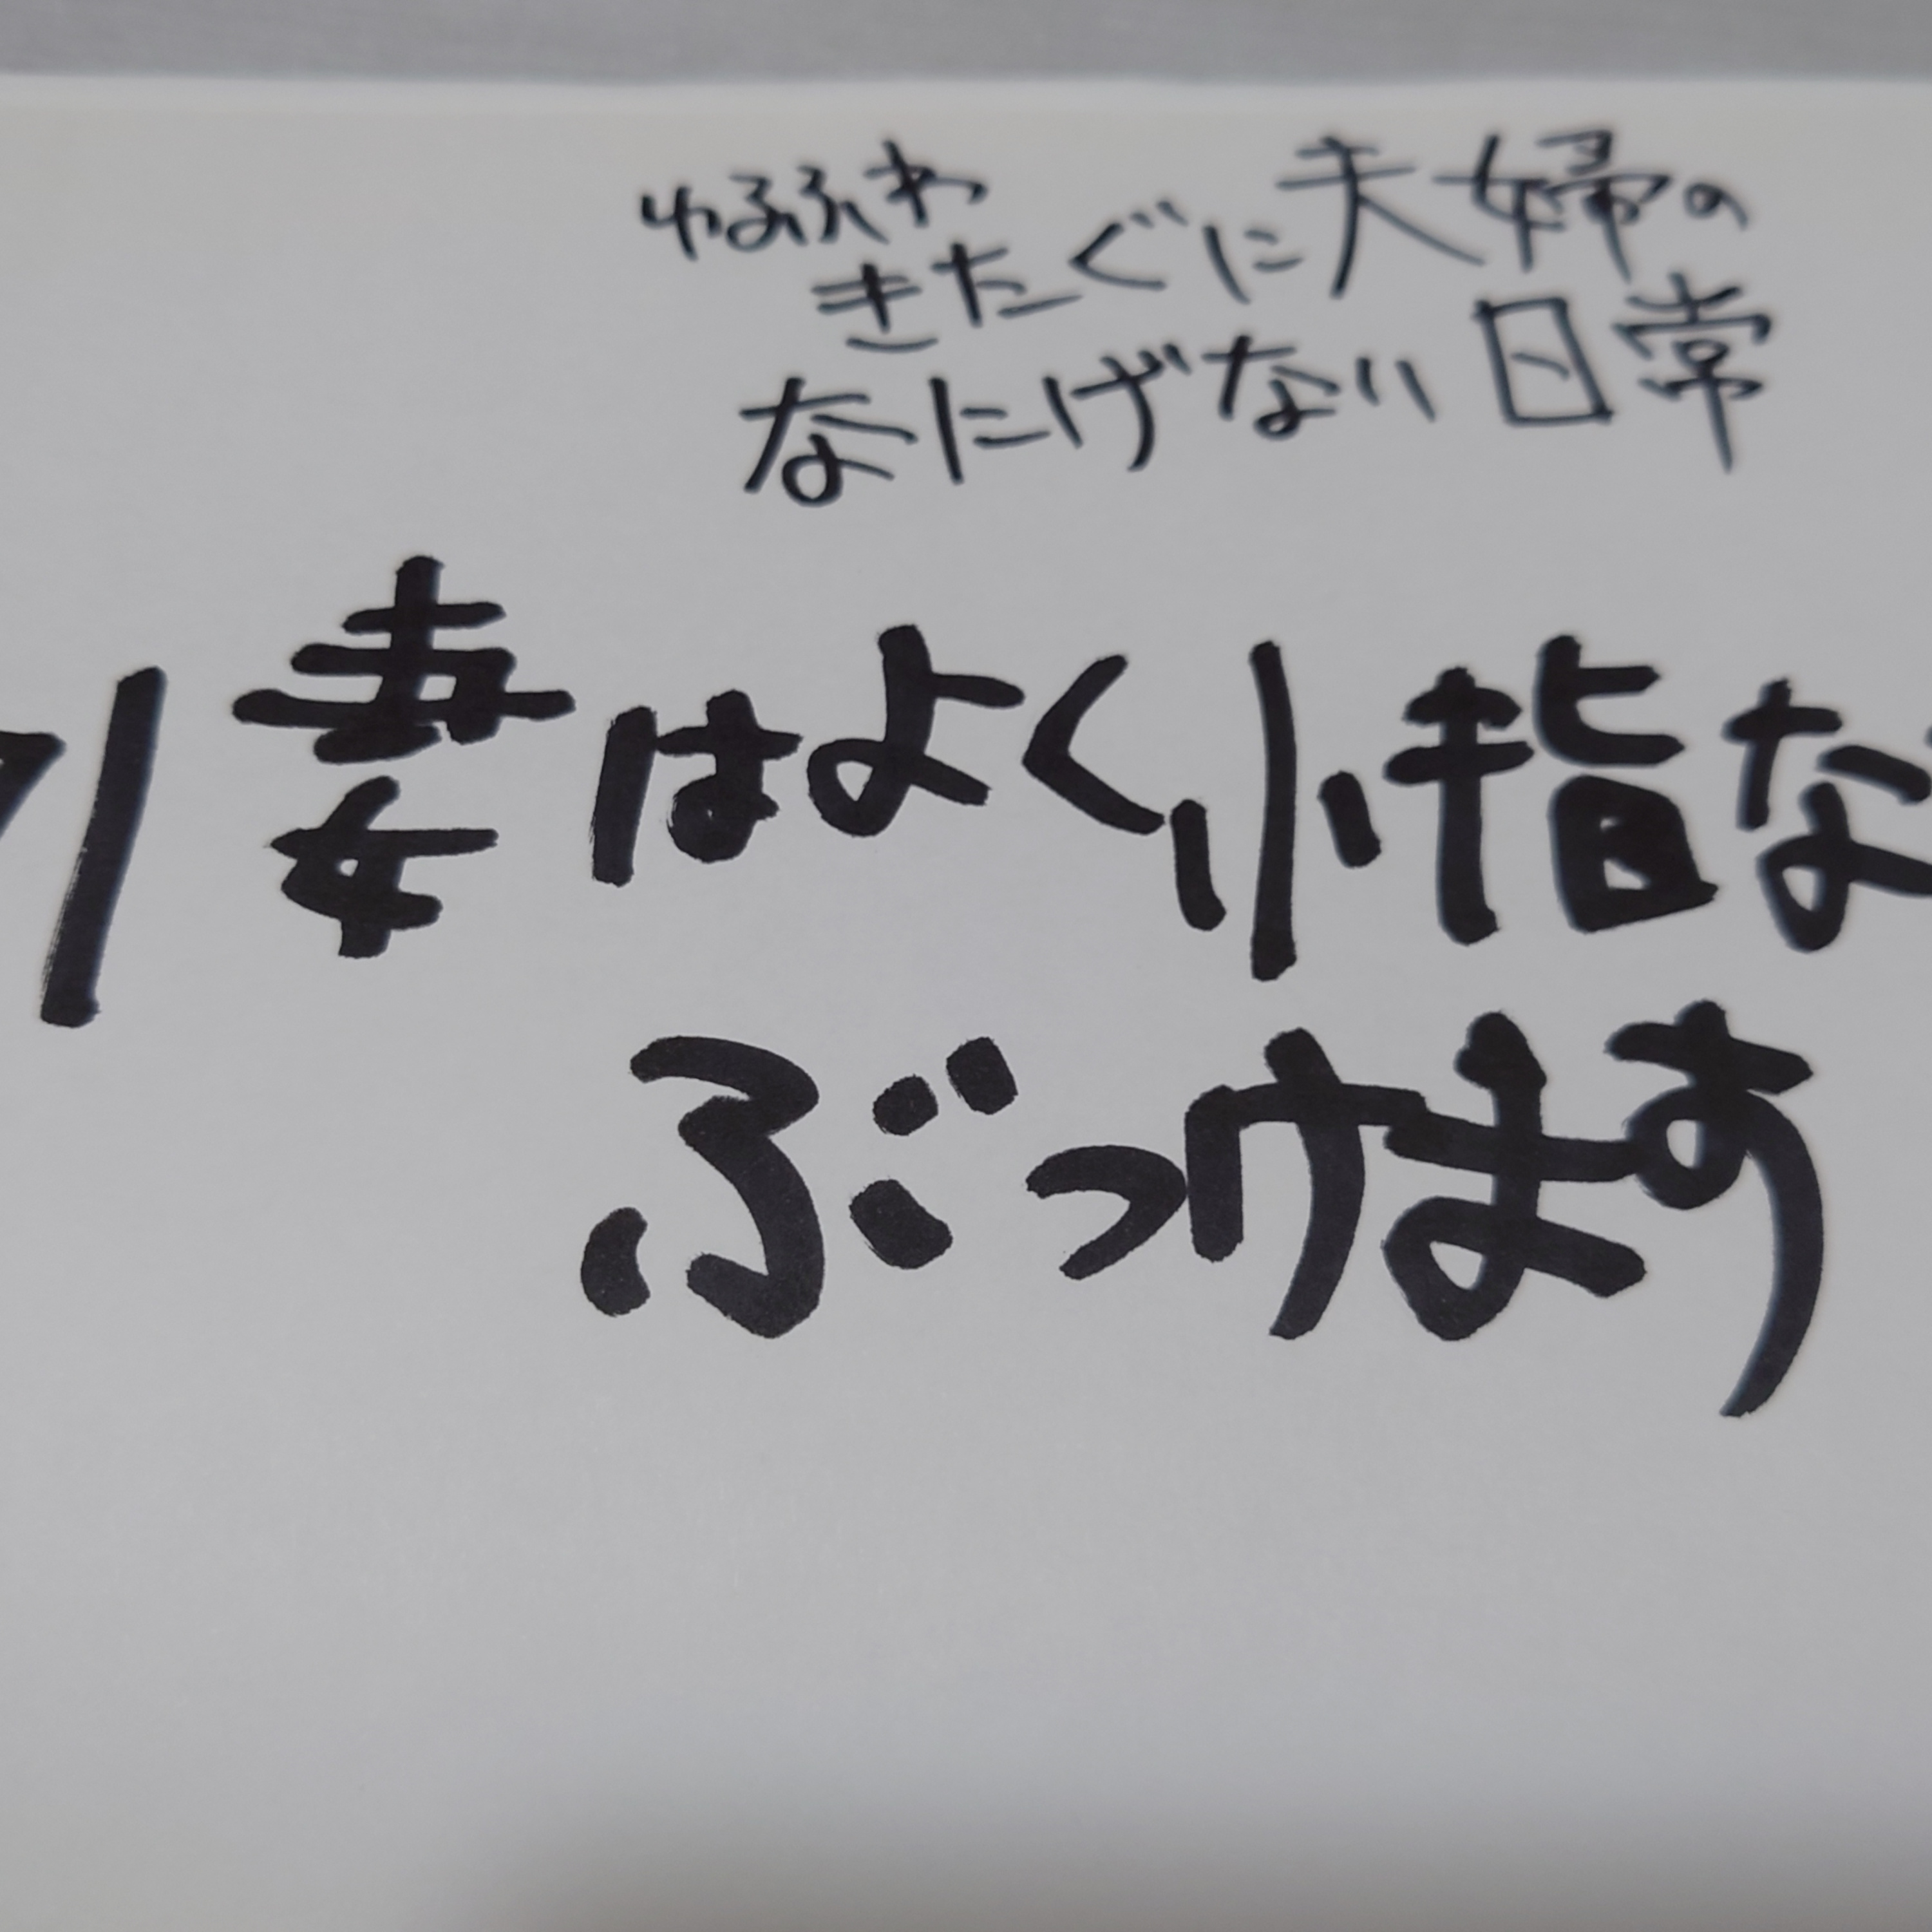 ゆるふわ
きたぐに夫婦の
なにげない日常
妻はよく小指な
ぶつけます